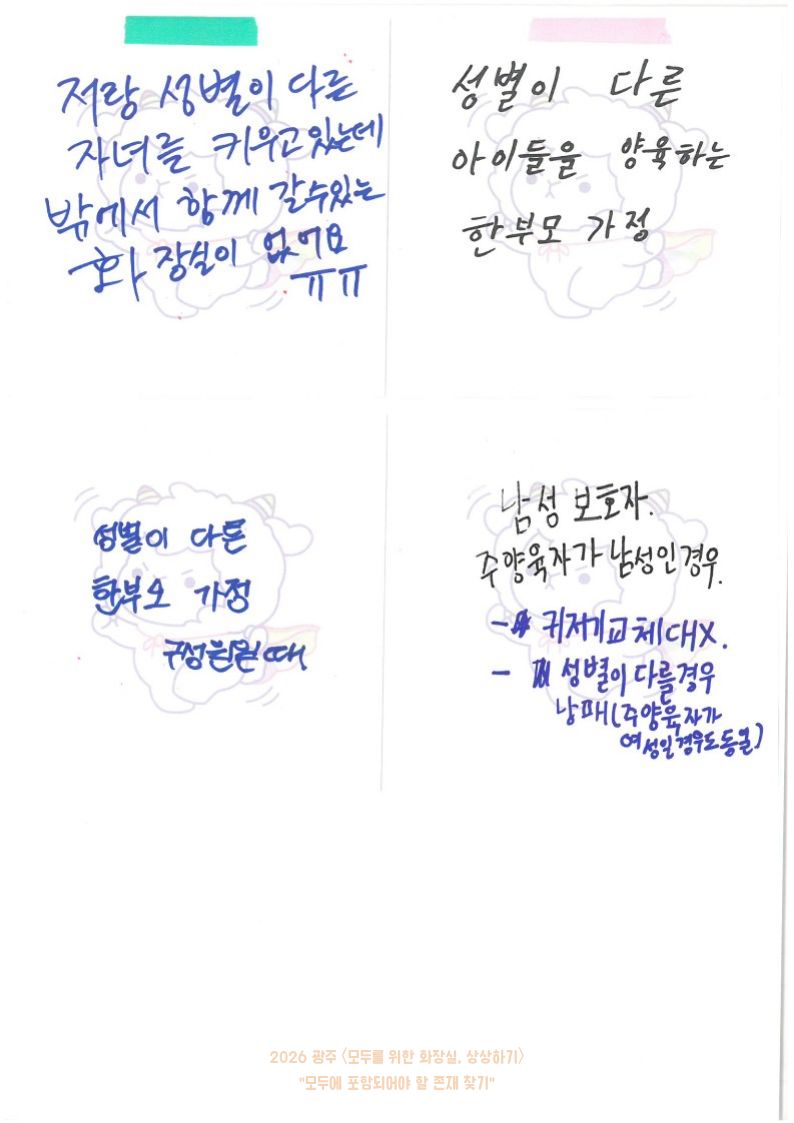 저랑 성별이 다른
자녀를 키우고있는데
밖에서 함께 갈수있는
화장실이 없어요
ㅠㅠ
성별이 다른
아이들을 양육하는
한부모 가정
성별이 다른
한부모 가정
구성원일 때
남성 보호자.
주양육자가 남성인경우.
- 귀저기교체대X.
- 성별이다를경우
낭패(주양육자가
여성인경우도동일)
2026 광주 <모두를 위한 화장실, 상상하기>
"모두에 포함되어야 할 존재 찾기"